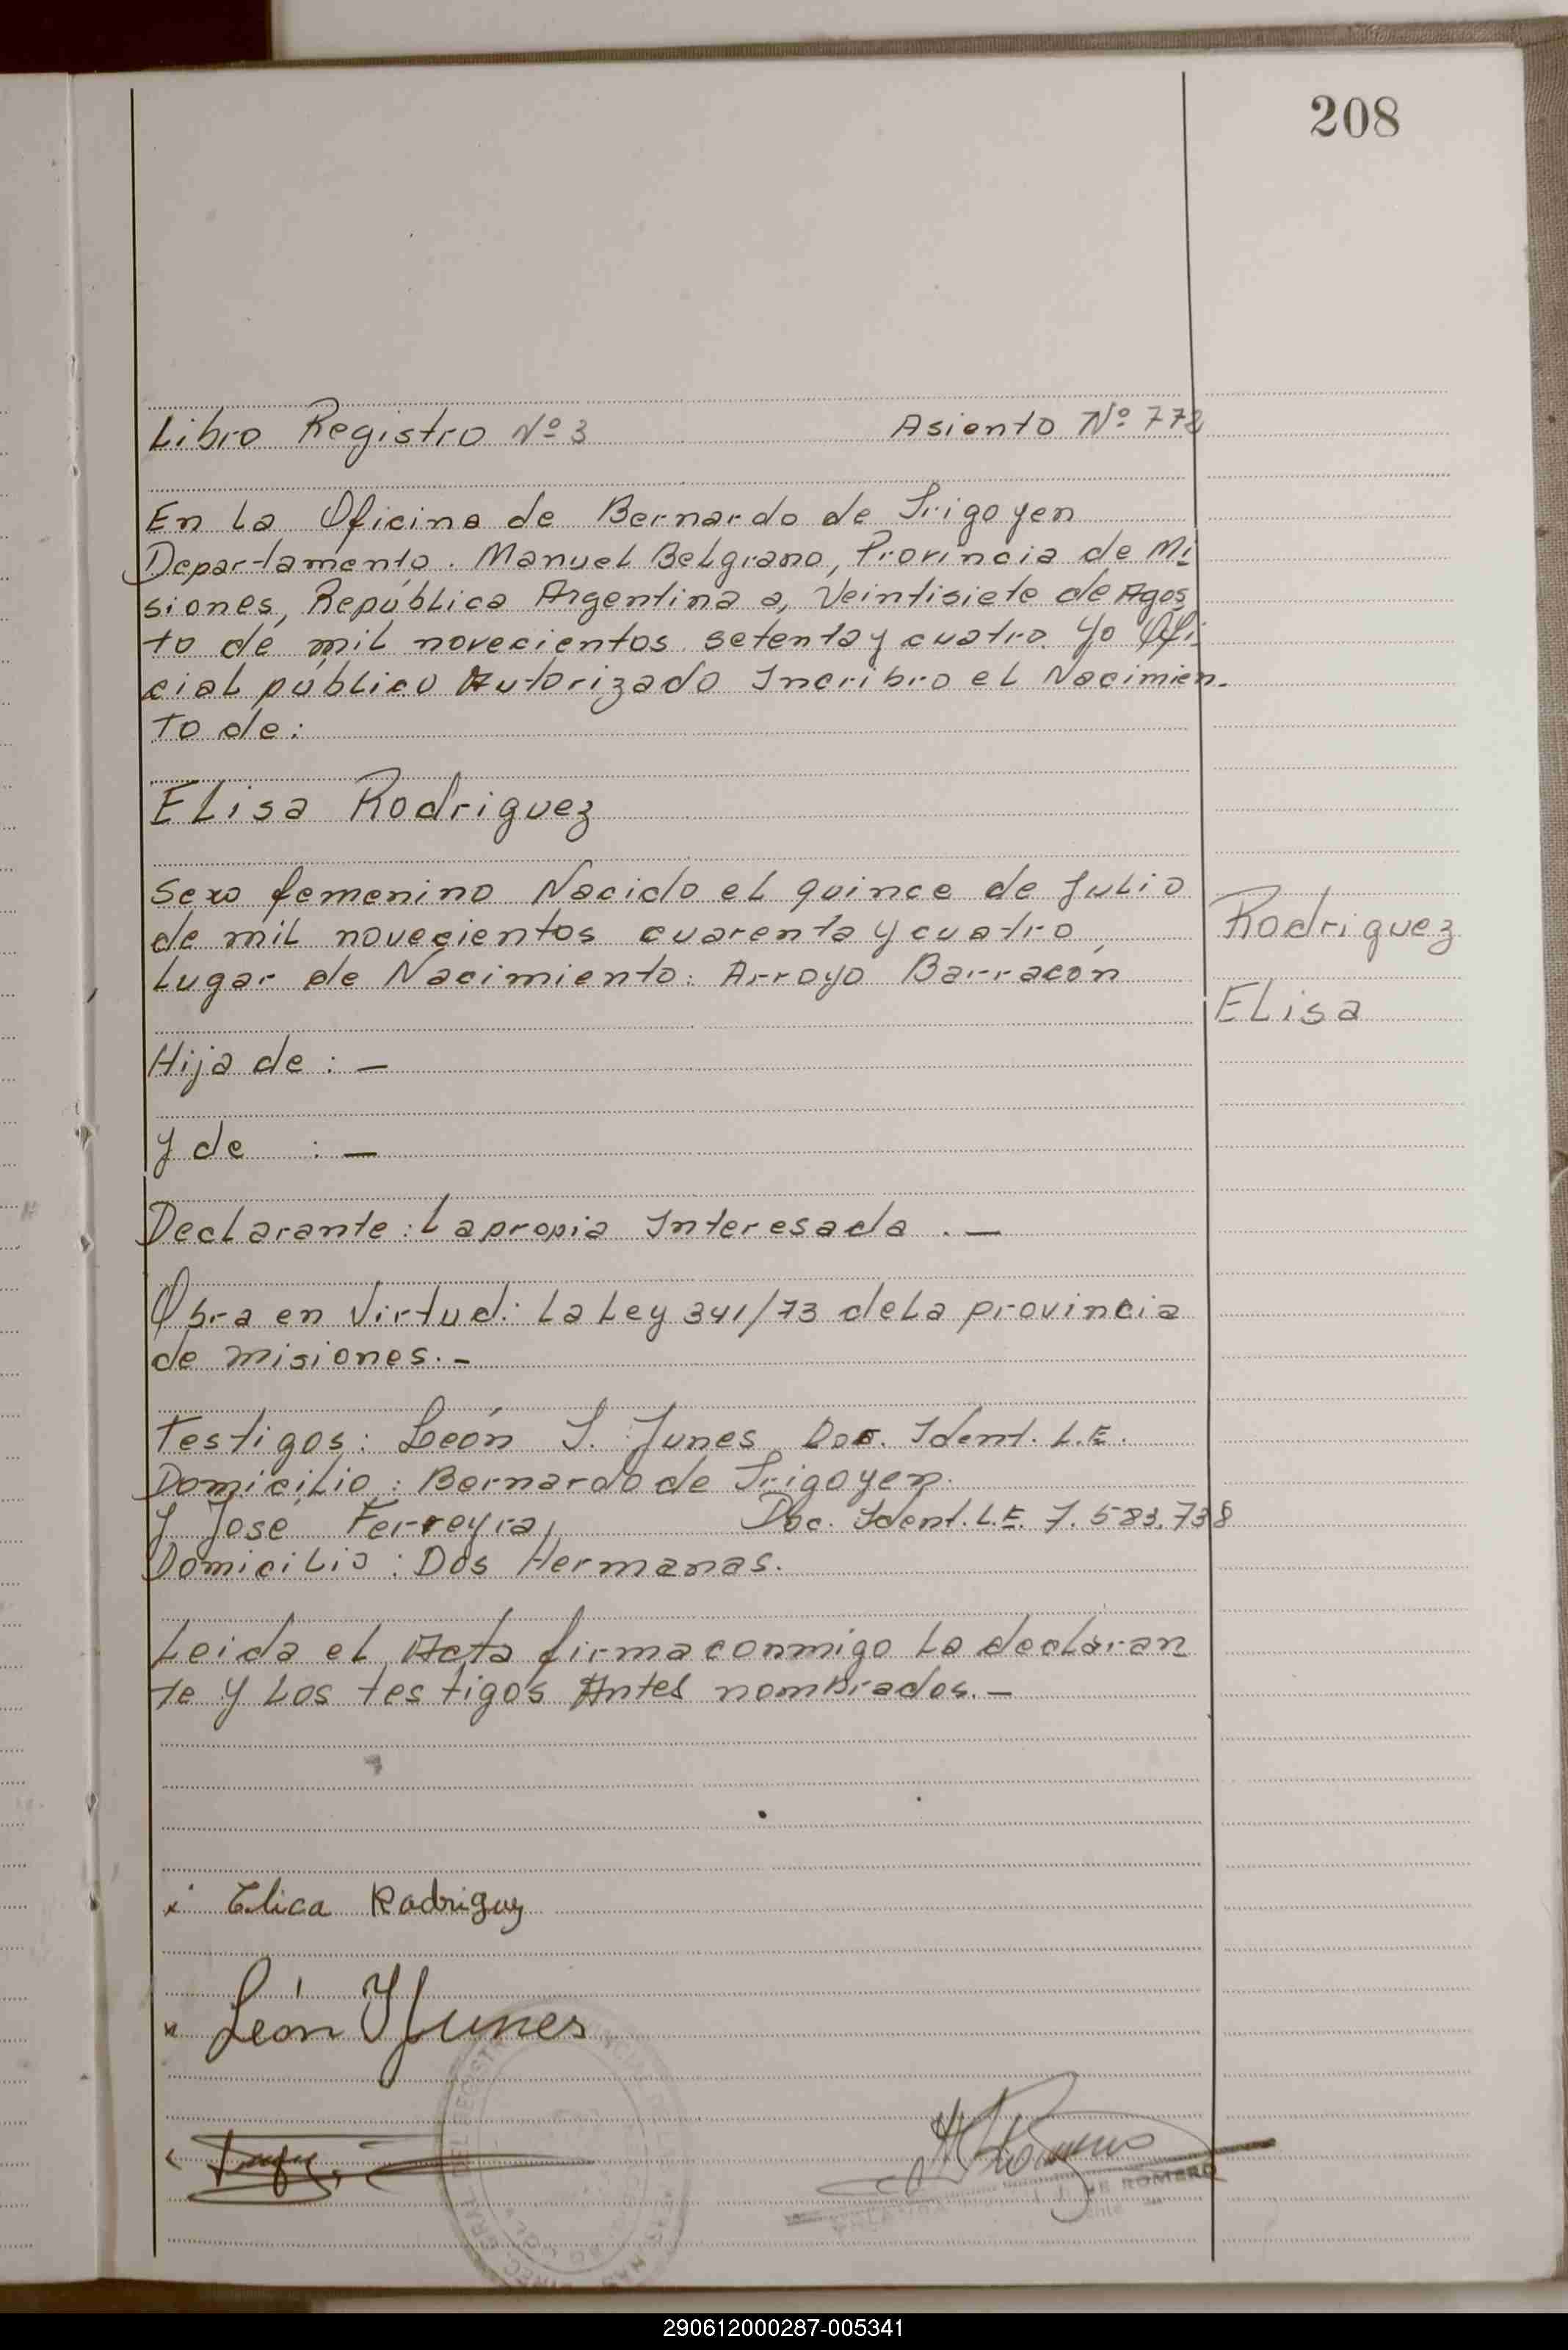 208
Libro Registro Nº 3 Asiento Nº 772
En La Oficina de Bernardo de Irigoyen
Departamento. Manuel Belgrano, Provincia de Mi
siones, República Argentina a, Veintisiete de Agos
to de mil novecientos setenta y cuatro. Yo Ofi
cial público Autorizado Incribro el Nacimien-
to de:
Elisa Rodriguez
Sexo femenino Nacido el quince de Julio
de mil novecientos cuarenta y cuatro,
Lugar de Nacimiento: Arroyo Barracón
Rodriguez
Elisa
Hija de : —
y de : —
Declarante: La propia Interesada . —
Obra en Virtud: La Ley 341/73 de La provincia
de misiones. -
Testigos: León I. Junes Doc. Ident. L.E.
Domicilio : Bernardo de Irigoyen.
y José Ferreyra, Doc. Ident. L.E. 7.583.738
Domicilio : Dos Hermanas.
Leida el Acta firma conmigo La declaran
te y Los testigos Antes nombrados. —
Elica Rodriguy
León Y Junes
DE ROMERO
290612000287-005341